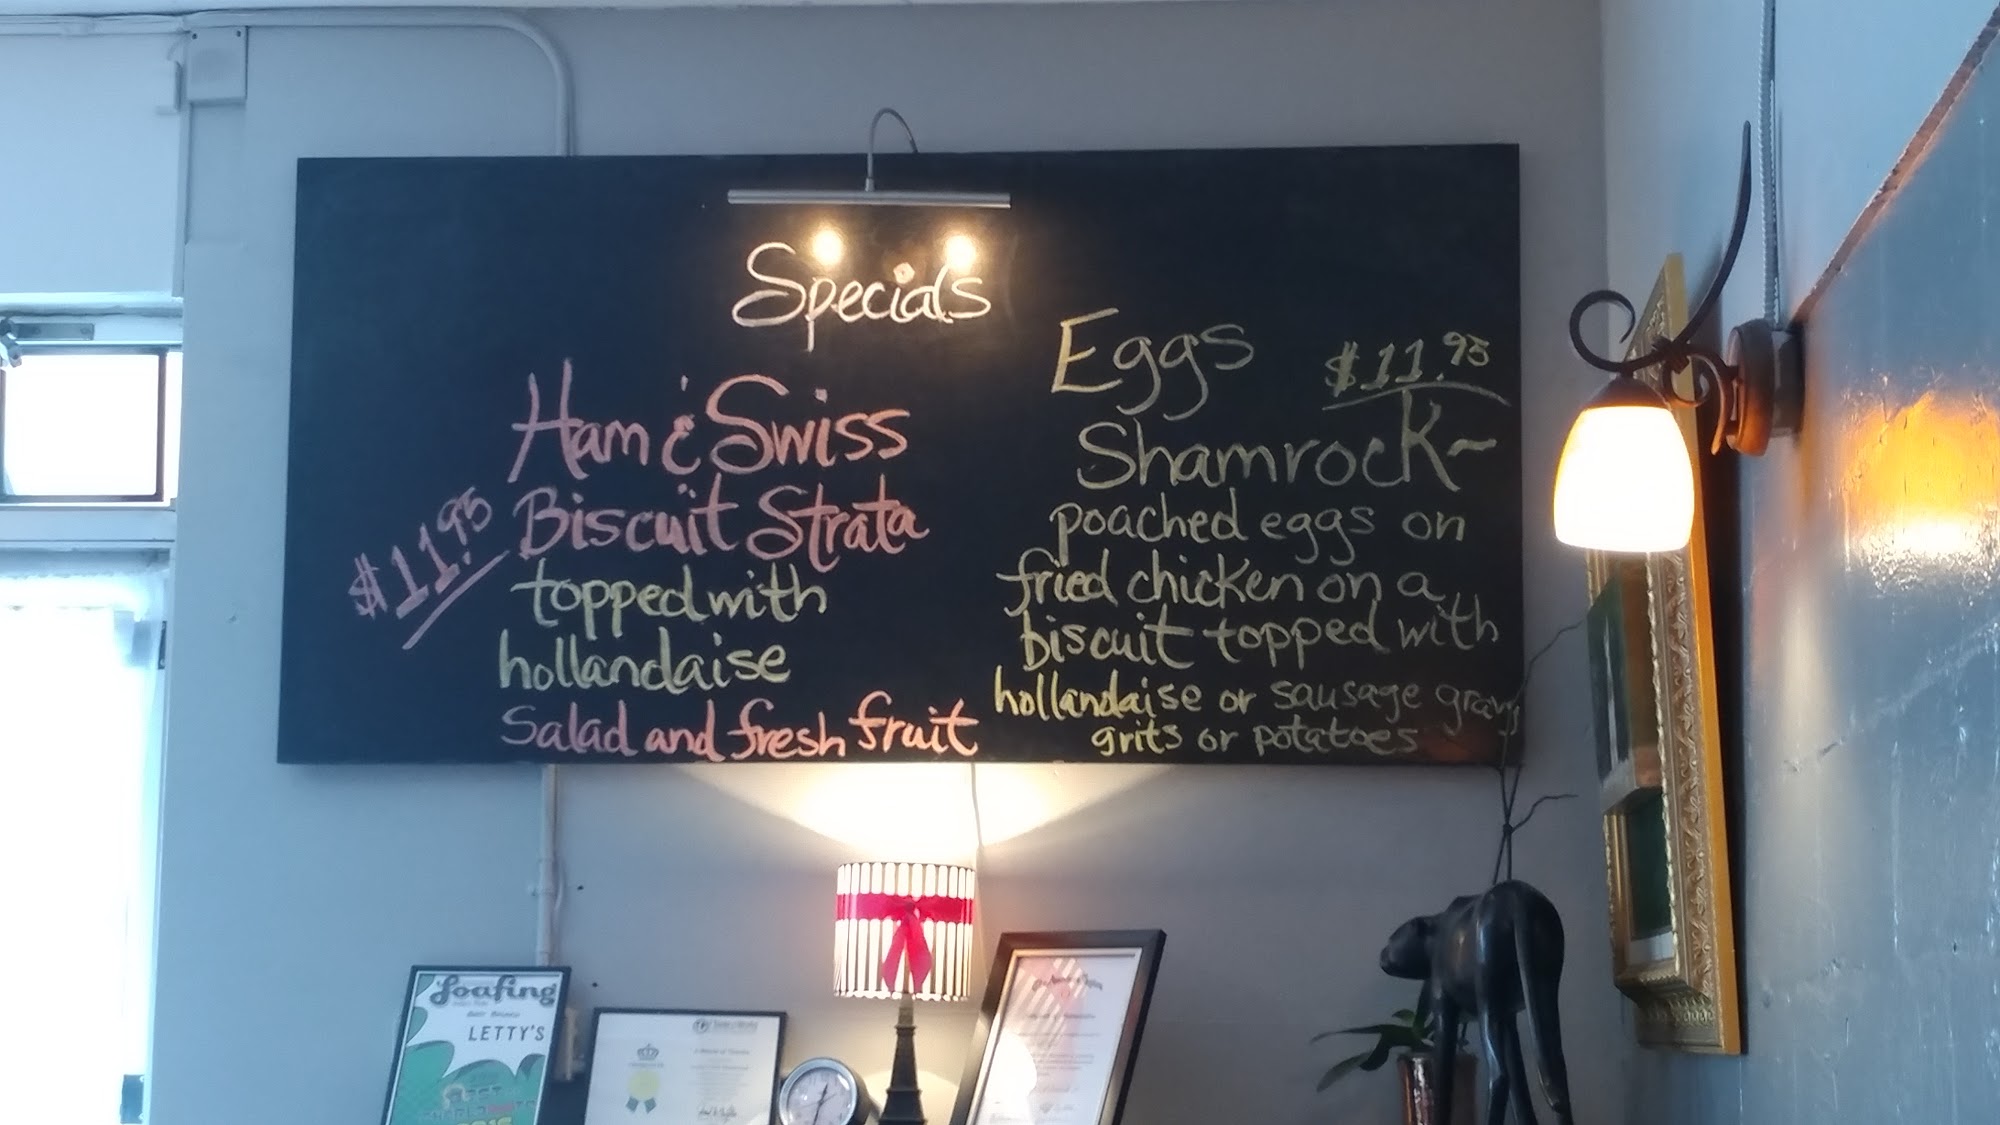 Specials
Ham & Swiss
Biscuit Strata
$11.95
topped with
hollandaise
Salad and fresh fruit
Eggs $11.95
Shamrock~
poached eggs on
fried chicken on a
biscuit topped with
hollandaise or sausage gravy
grits or potatoes
Loafing
LETTY'S